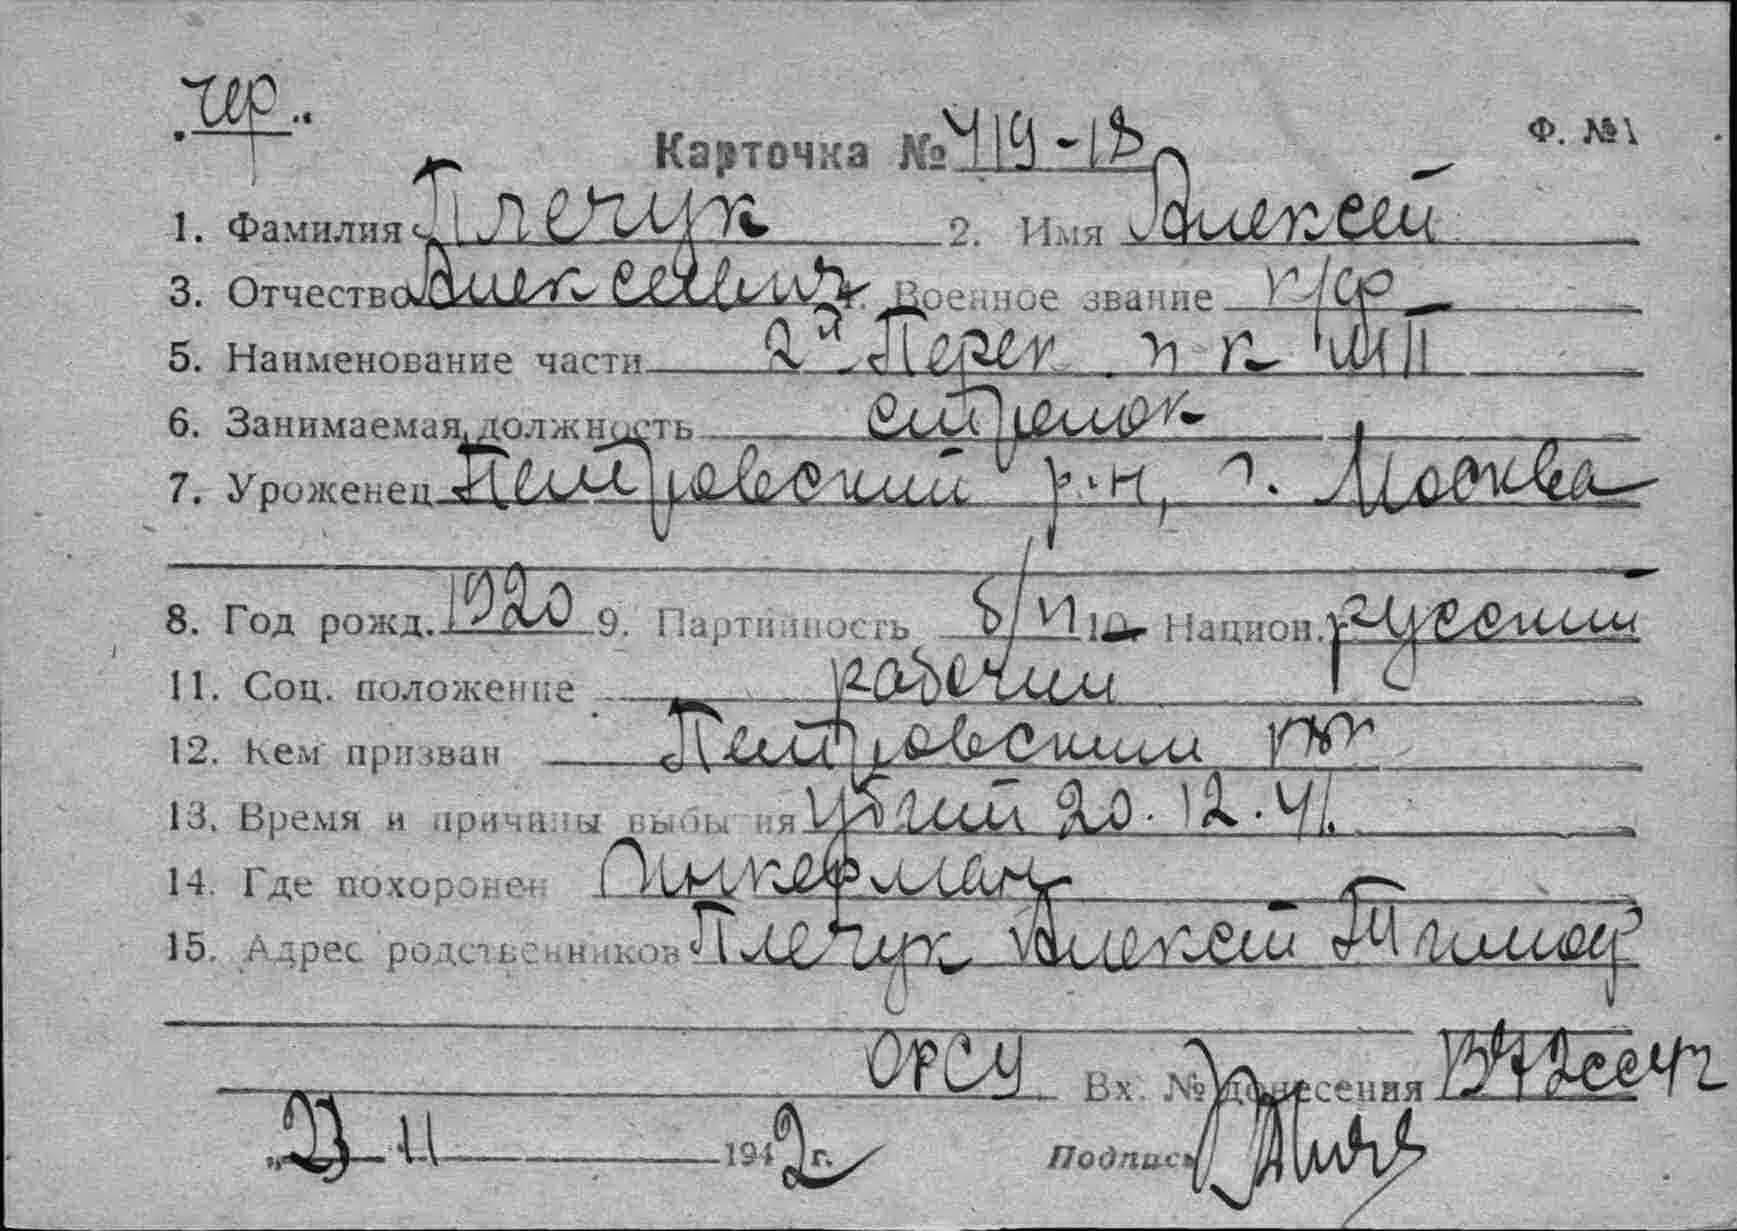 чер.
Карточка № 419-18 Ф. №1
1. Фамилия Плечук 2. Имя Алексей
3. Отчество Алексеевич 4. Военное звание к/ф
5. Наименование части 2й Перек. п-к МП
6. Занимаемая должность стрелок
7. Уроженец Петровский р-н, г. Москва
8. Год рожд. 1920 9. Партийность б/п 10. Национ. русский
11. Соц. положение рабочий
12. Кем призван Петровским
13. Время и причины выбытия Убит 20.12.41.
14. Где похоронен Инкерман
15. Адрес родственников Плечук Алексей Тимоф
ОРСУ Вх. № донесения
„23 11 1942 г. Подпись